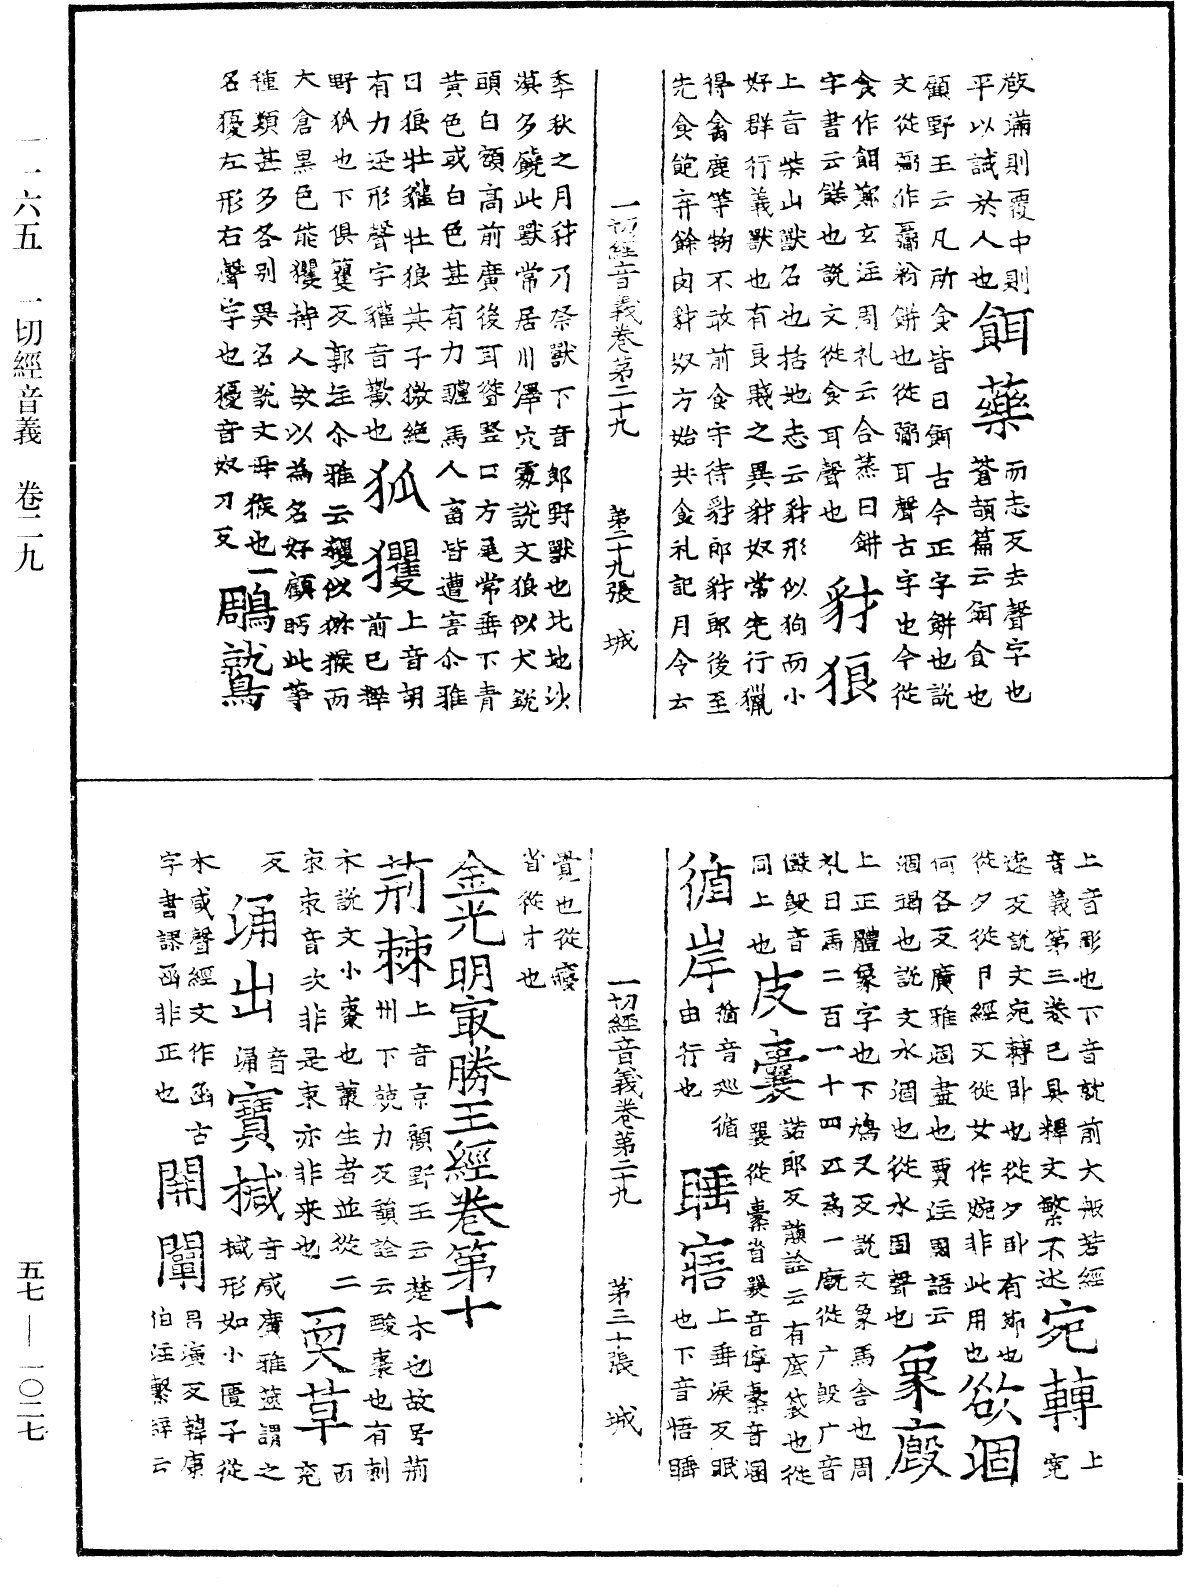 一一六五 一切經音義 卷二九
五七—一〇二七
敧滿則覆中則
平以誡於人也餌藥而志反去聲字也
蒼頡篇云餌食也
顧野王云凡所食皆曰餌古今正字餅也說
文從䰜作𩱧粉餅也從䰜耳聲古字也今從
食作餌鄭玄注周礼云合蒸曰餅
字書云餻也說文從食耳聲也豺狼
上音柴山獸名也括地志云豺形似狗而小
好群行義獸也有良賤之異豺奴常先行獵
得禽鹿等物不敢前食守待豺郎豺郎後至
先食飽弃餘肉豺奴方始共食礼記月令云
一切經音義卷第二十九 第二十九張 城
季秋之月豺乃祭獸下音郎野獸也北地沙
漠多饒此獸常居川澤穴處說文狼似犬銳
頭白額高前廣後耳聳豎口方尾常垂下青
黃色或白色甚有力驢馬人畜皆遭害尒雅
曰狼牡獾牝狼其子獥絕
有力迅形聲字獾音歡也狐玃上音胡
前已釋
野狐也下俱籰反郭注尒雅云玃似獼猴而
大倉黑色能玃搏人故以為名好顧眄此等
種類甚多各別異名說文母猴也一
名獶左形右聲字也獶音奴刀反鵰鷲
上音彫也下音就前大般若經
音義第三卷已具釋文繁不述宛轉上
宛
遠反說文宛轉卧也從夕卧有節也
從夕從卪經文從女作婉非此用也欲涸
何各反廣雅涸盡也賈注國語云
涸竭也說文水涸也從水固聲也象廄
上正體象字也下鳩又反說文象馬舍也周
礼曰馬二百一十四匹為一廄從广𣪘广音
儼𣪘音
同上也皮囊諾郎反韻詮云有底袋也從
㯻省㐮音儜㯻音溷
循岸循音巡循
由行也睡寤上垂淚反眠
也下音悟睡
一切經音義卷第二十九 第三十張 城
覺也從㝱
省從才也
金光明最勝王經卷第十
荊棘上音京顧野王云楚木也故号荊
州下兢力反韻詮云酸棗也有刺
木說文小棗也叢生者並從二
朿朿音次非是束亦非来也耎草而
兖
反涌出音
涌寶椷音咸廣雅篋謂之
椷形如小匱子從
木咸聲經文作函古
字書謀函非正也開闡昌演反韓康
伯注繫辭云